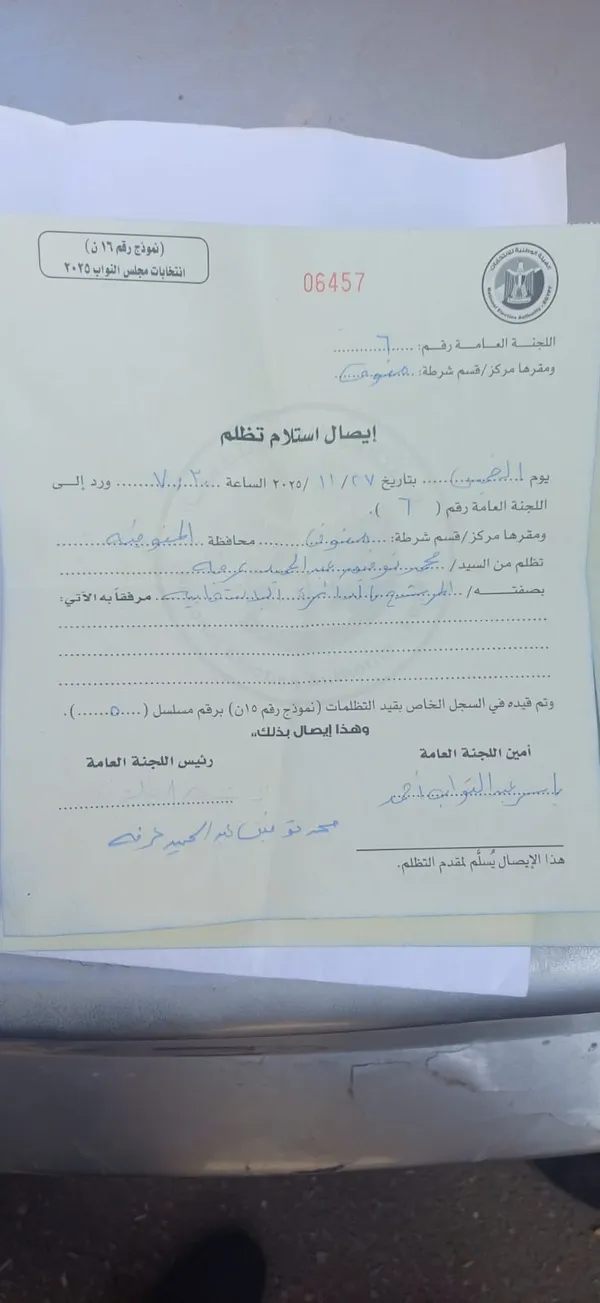 (نموذج رقم ١٦ ن)
انتخابات مجلس النواب ٢٠٢٥
06457
الهيئة الوطنية للانتخابات
National Election Authority - EGYPT
اللجنة العـامـة رقـم: ......٦......
ومقرها مركز/قسم شرطة: ..منوف..
إيصال استلام تظلم
يوم الخميس..... بتاريخ ٢٧/ ١١ /٢٠٢٥ الساعة ...٧,٣٠... ورد إلـى
اللجنة العامة رقم ( ٦ ).
ومقرها مركز/قسم شرطة: ...منوف......... محافظة ..المنوفية......
تظلم من السيد/ ..محمد توفيق عبد الحميد عرفه
بصفتـــه/ ..المرشح بالدائرة الانتخابية.. مرفقاً به الآتي:
وتم قيده في السجل الخاص بقيد التظلمات (نموذج رقم ١٥ن) برقم مسلسل (....٥......).
وهذا إيصال بذلك،،
أمين اللجنة العامة
رئيس اللجنة العامة
ياسر عبد التواب أحمد
محمد توفيق عبد الحميد عرفه
هذا الإيصال يُسلَّم لمقدم التظلم.